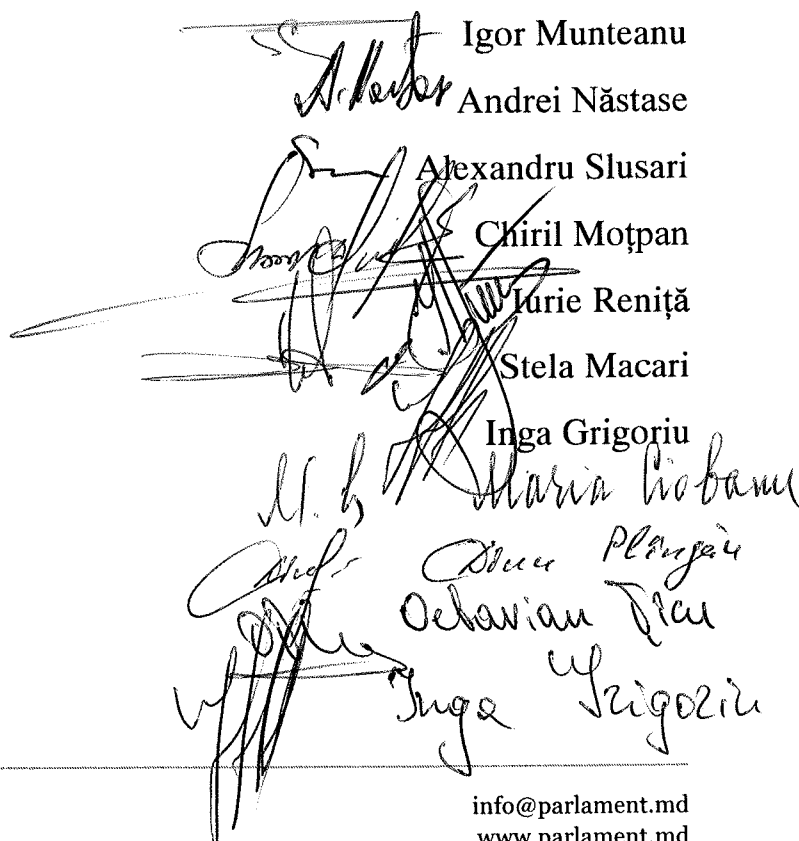 Igor Munteanu
A. Năstase Andrei Năstase
Alexandru Slusari
Chiril Moțpan
Iurie Reniță
Stela Macari
Inga Grigoriu
M. C. Maria Ciobanu
Dinu Plîngău
Octavian Țîcu
Inga Grigoriu
info@parlament.md
www.parlament.md